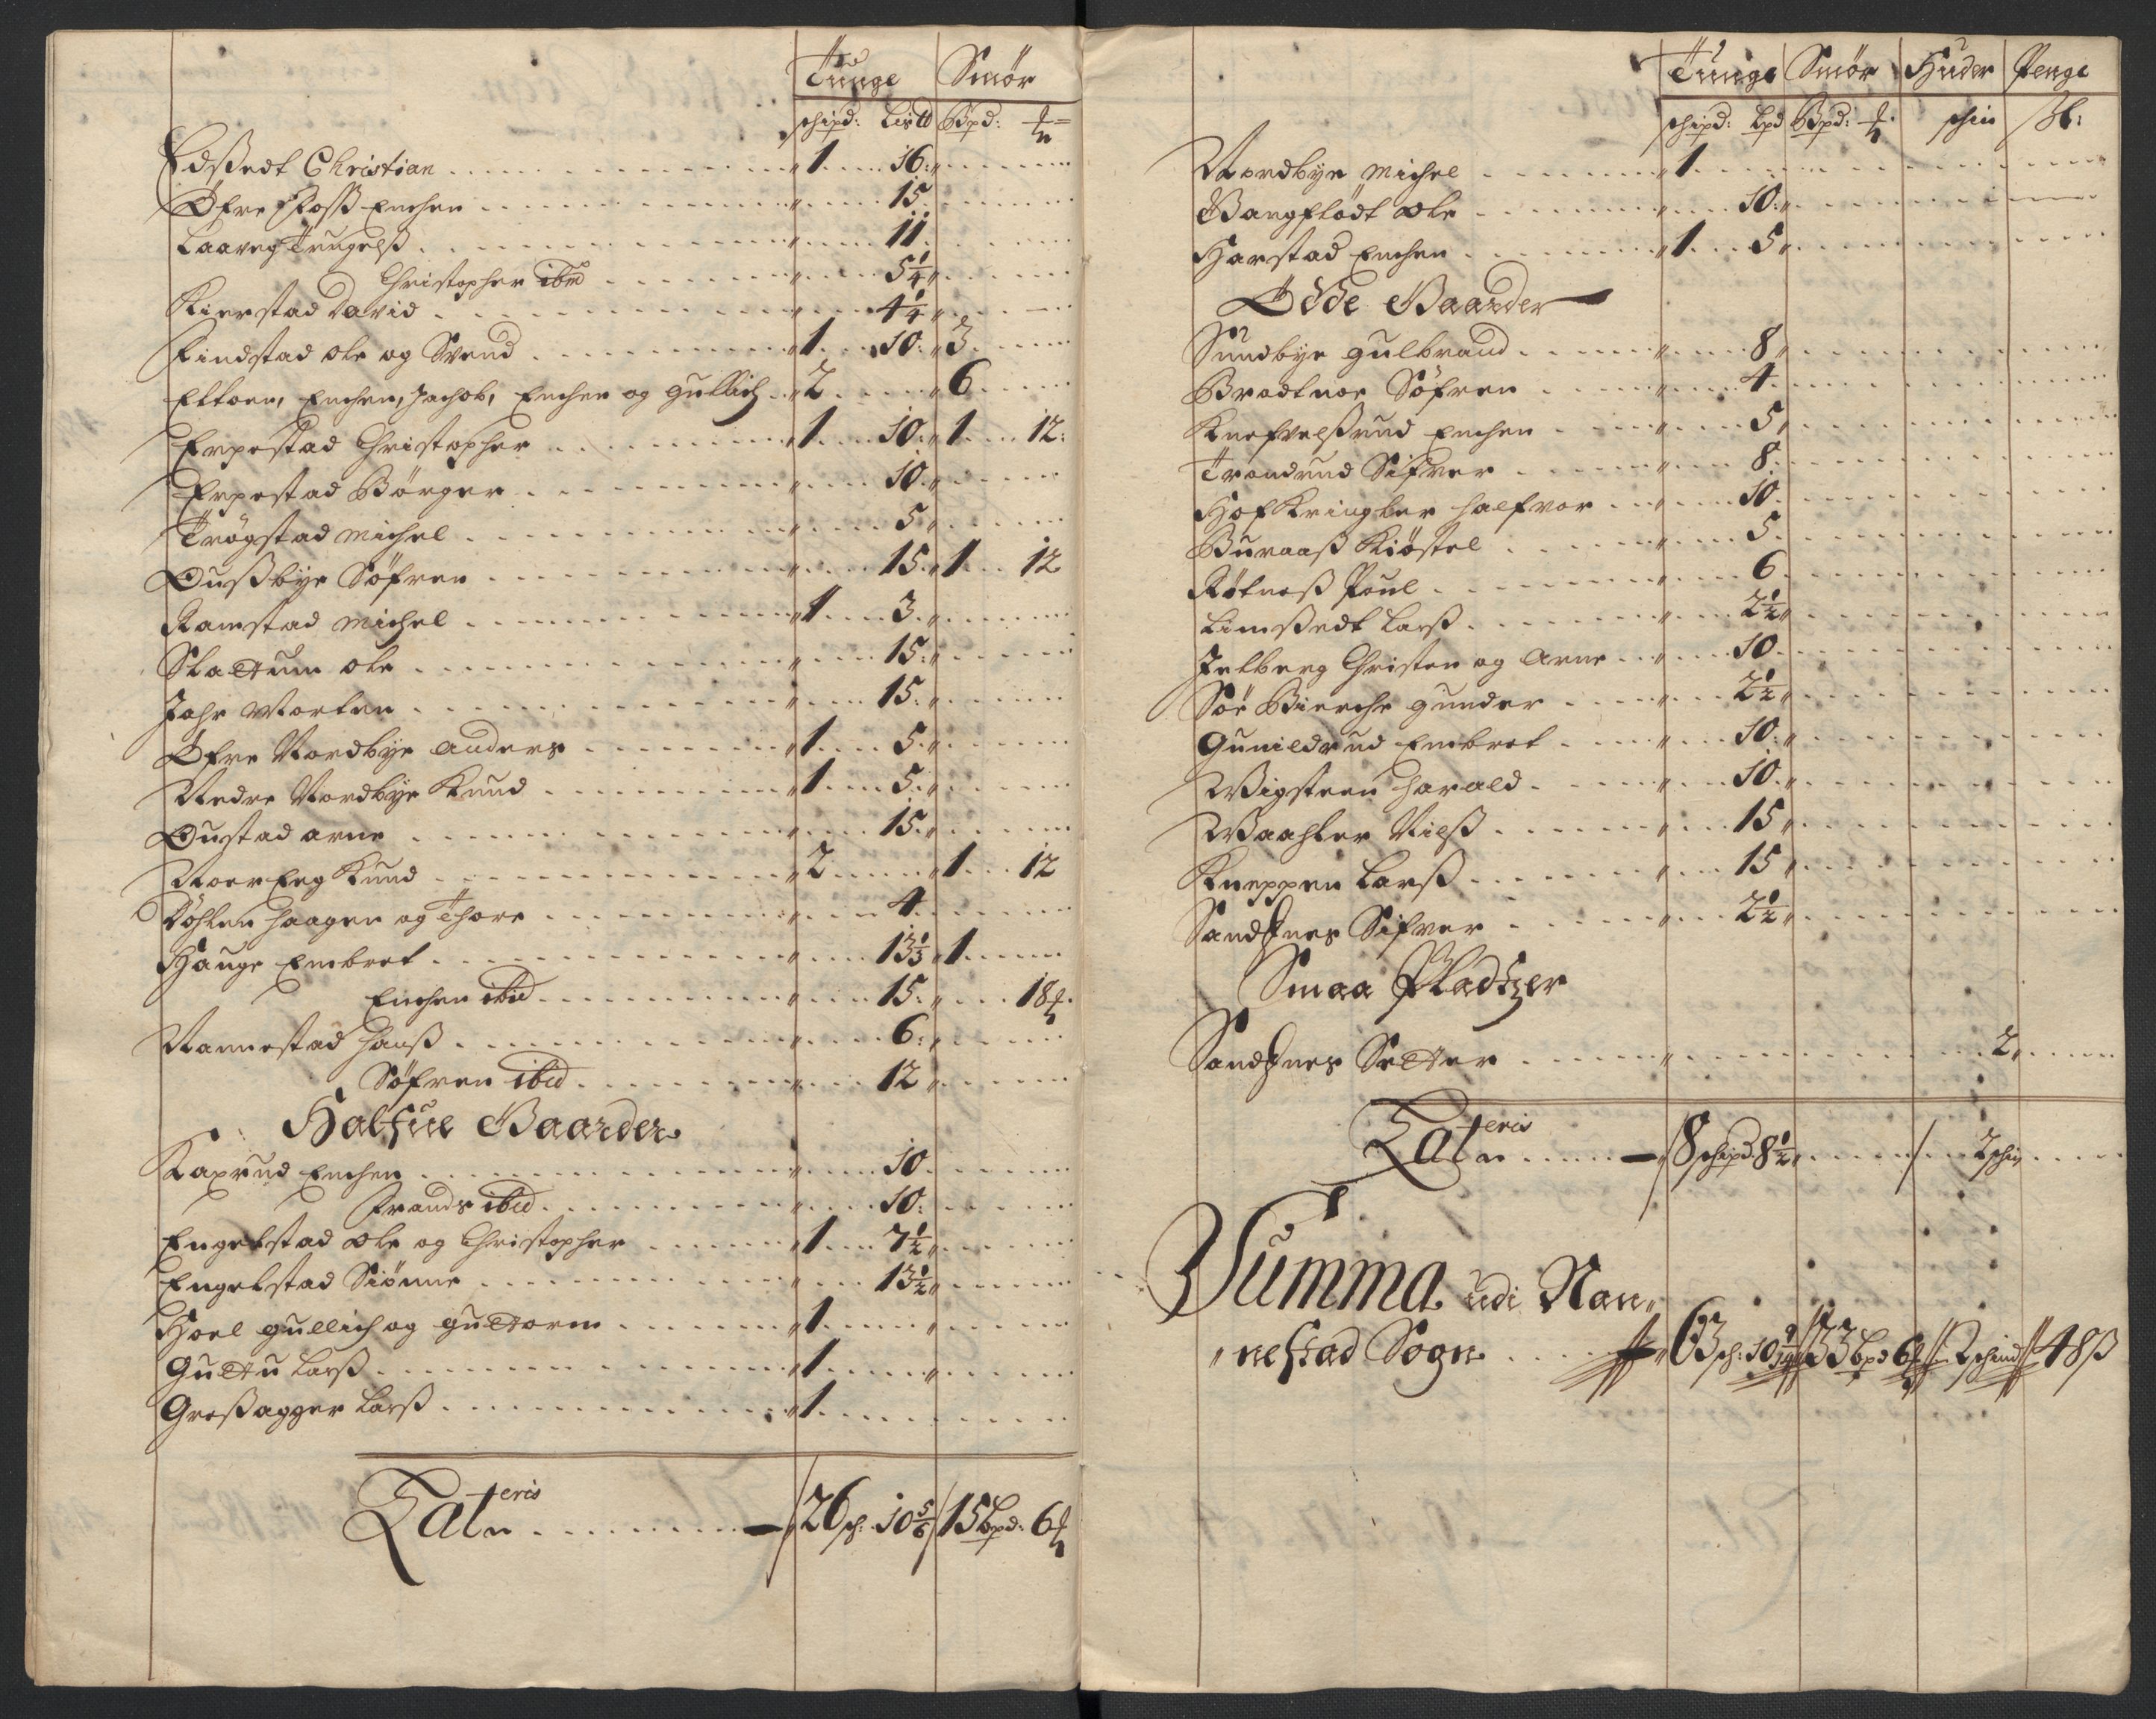 Tunge Smør
schipd: Lis℔ Bpd: ℔
Edssedt Christian 1 16
Øfre Foss Erichen 15
Laaveg Trugelss 11
Christopher ibid 5¼
Kierstad David 4¼
Findstad Ole og Svend 1 10 3
Eltoen, Erichen, Jachob, Erichen og gullich 2 6
Erpestad Christopher 1 10 1 12
Erpestad Børger 10
Trøgstad Michel 5
Oussbye Søfren 15 1 12
Ramstad Michel 1 3
Slattum Ole 15
Jahr Morten 15
Øfre Nordbye Anders 1 5
Nedre Nordbye Knud 1 5
Oustad Arne 15
Noer Eeg Knud 2 1 12
Døhlen Haagen og Thore 4
Hauge Embret 13⅓ 1
Erichen ibid 15 18℔
Nannestad Hanss 6
Søfren ibid 12
Halfue Gaarder
Kaxrud Erichen 10
Frands ibid 10
Engelstad Ole og Christopher 1 7½
Engelstad Siønne 13½
Hoel gullich og guttorm 1
Guttu Larss 1
Gressagger Larss 1
Lateris 26 sch: 10⅚ 15 bpd: 6℔
Tunge Smør Huder Penge
schipd: Lpd Bpd: ℔ schin sk:
Nordbye Michel 1
Bangflødt Ole 10
Harstad Erichen 1 5
Øde Gaarder
Sundbye gulbrand 8
Bradtnor Søfren 4
Knefvelssrud Erichen 5
Trondrud Sifver 8
Hofkringler Halfvor 10
Buraass Kiøstel 5
Røtness Poul 6
Limssedt Larss 2½
Jelberg Christen og Arne 10
Sør Bierche gunder 2½
Gunildrud Embret 10
Wigsteen Harald 10
Waahler Nilss 15
Kneppen Larss 15
Sandsnes Sifver 2½
Smaa Pladtzer
Sandsnes Setter 2
Lateris 8 schipd 8½ 2 schin
Summa udi Nan,
nestad Sogn 63 sch: 10 33 bpd 6℔ 2 schind 48 ß